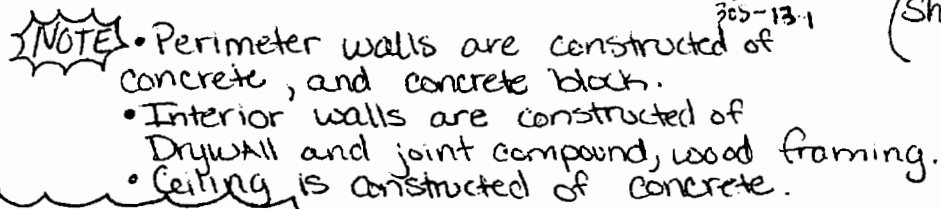 305-13.1
(Sh
NOTE • Perimeter walls are constructed of
concrete, and concrete block.
• Interior walls are constructed of
DryWAll and joint compound, wood framing.
• Ceiling is constructed of concrete.